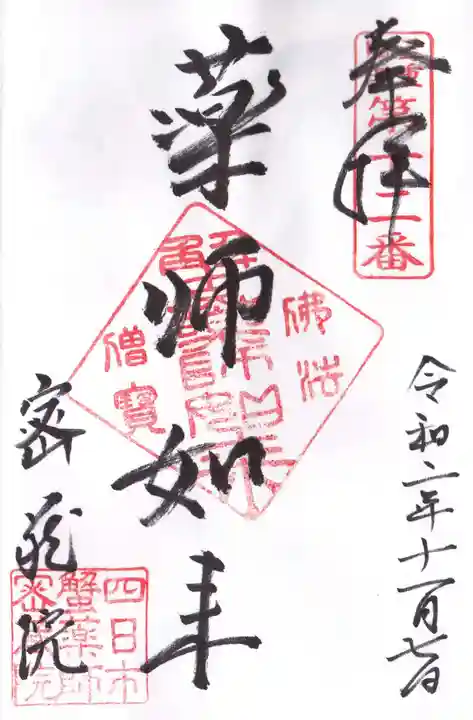 奉拝
令和二年十一月七日
薬師如来
密蔵院
四日市
蟹薬師
密蔵院
佛法
僧寳